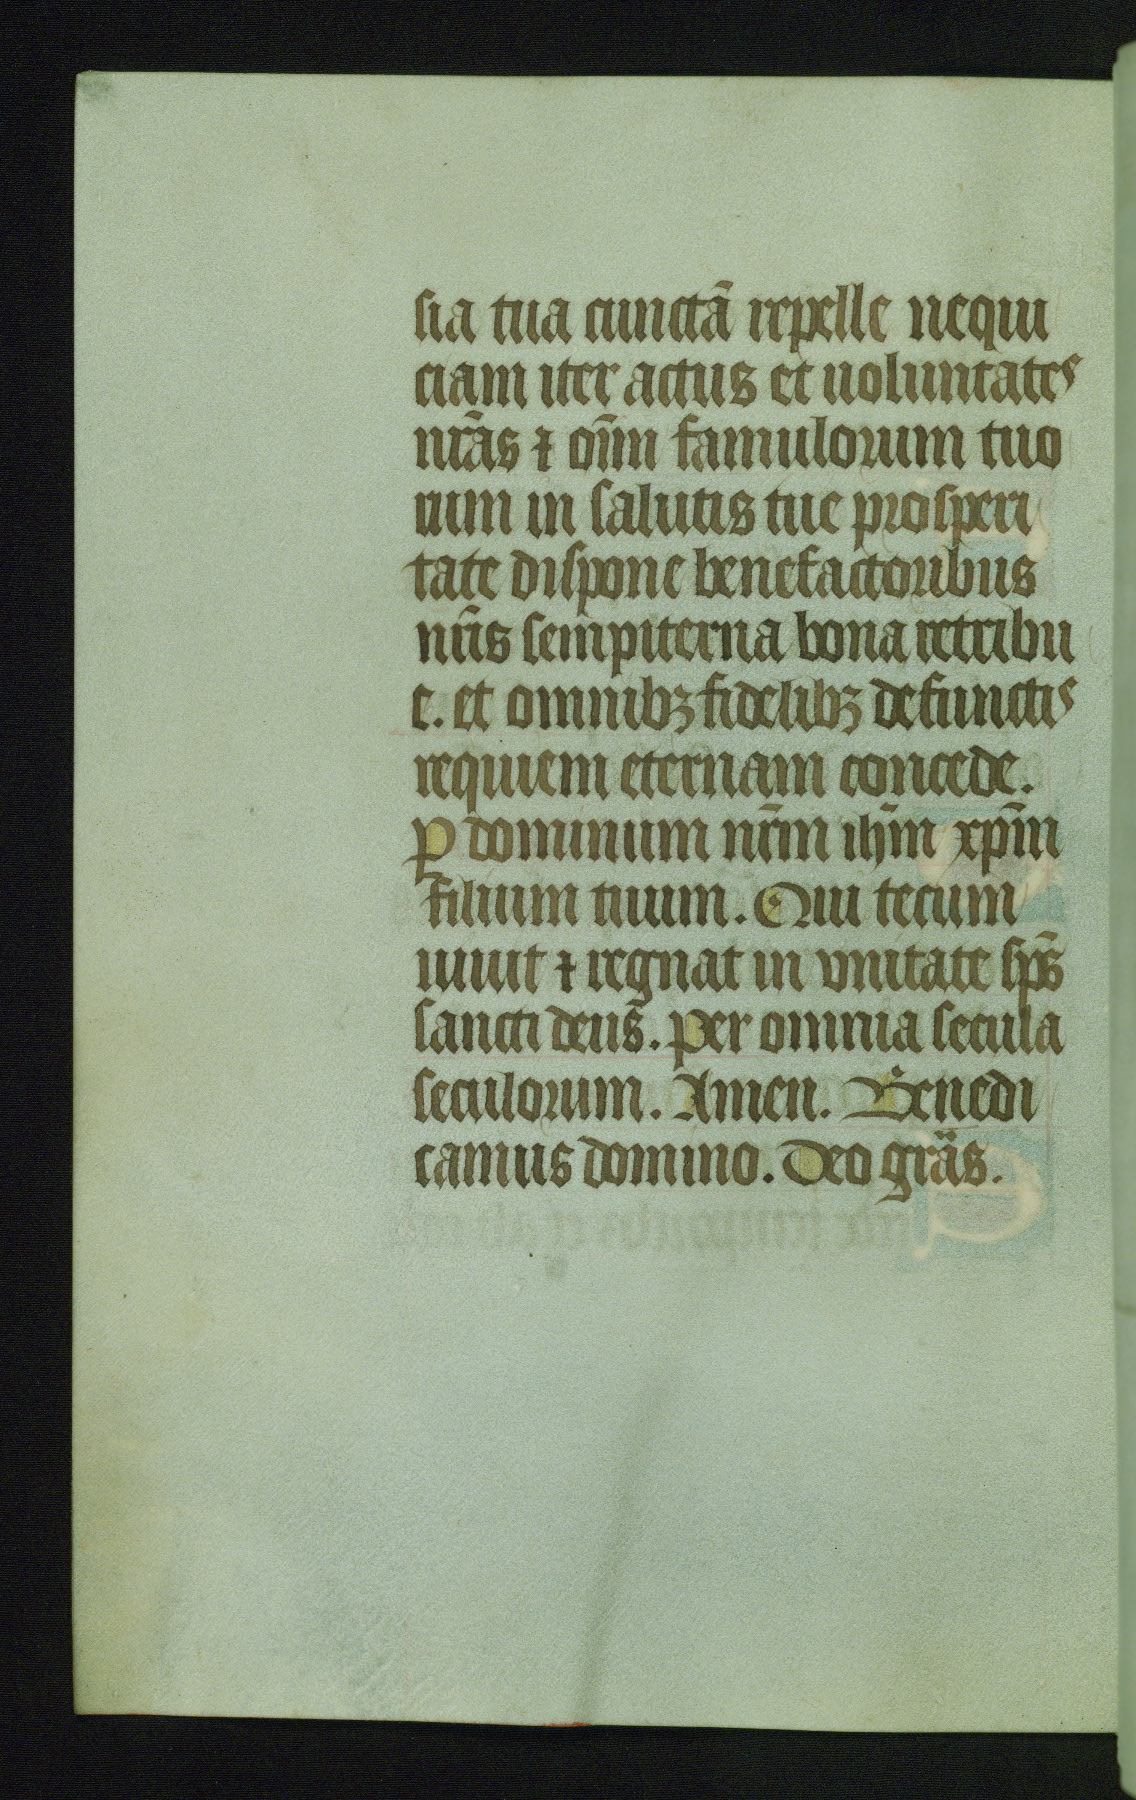 sia tua cunctā repelle nequi
ciam iter actus et uoluntates
nr̄as ⁊ oīm famulorum tuo
rum in salutis tue prosperi
tate dispone benefactoribus
nr̄is sempiterna bona retribu
e. et omnibꝫ fidelibꝫ defunctis
requiem eternam concede.
ꝑ dominum nr̄m ih̄m xp̄m
filium tuum. Qui tecum
uiuit ⁊ regnat in vnitate sp̄s
sancti deus. Per omnia secula
seculorum. Amen. Benedi
camus domino. Deo grās.